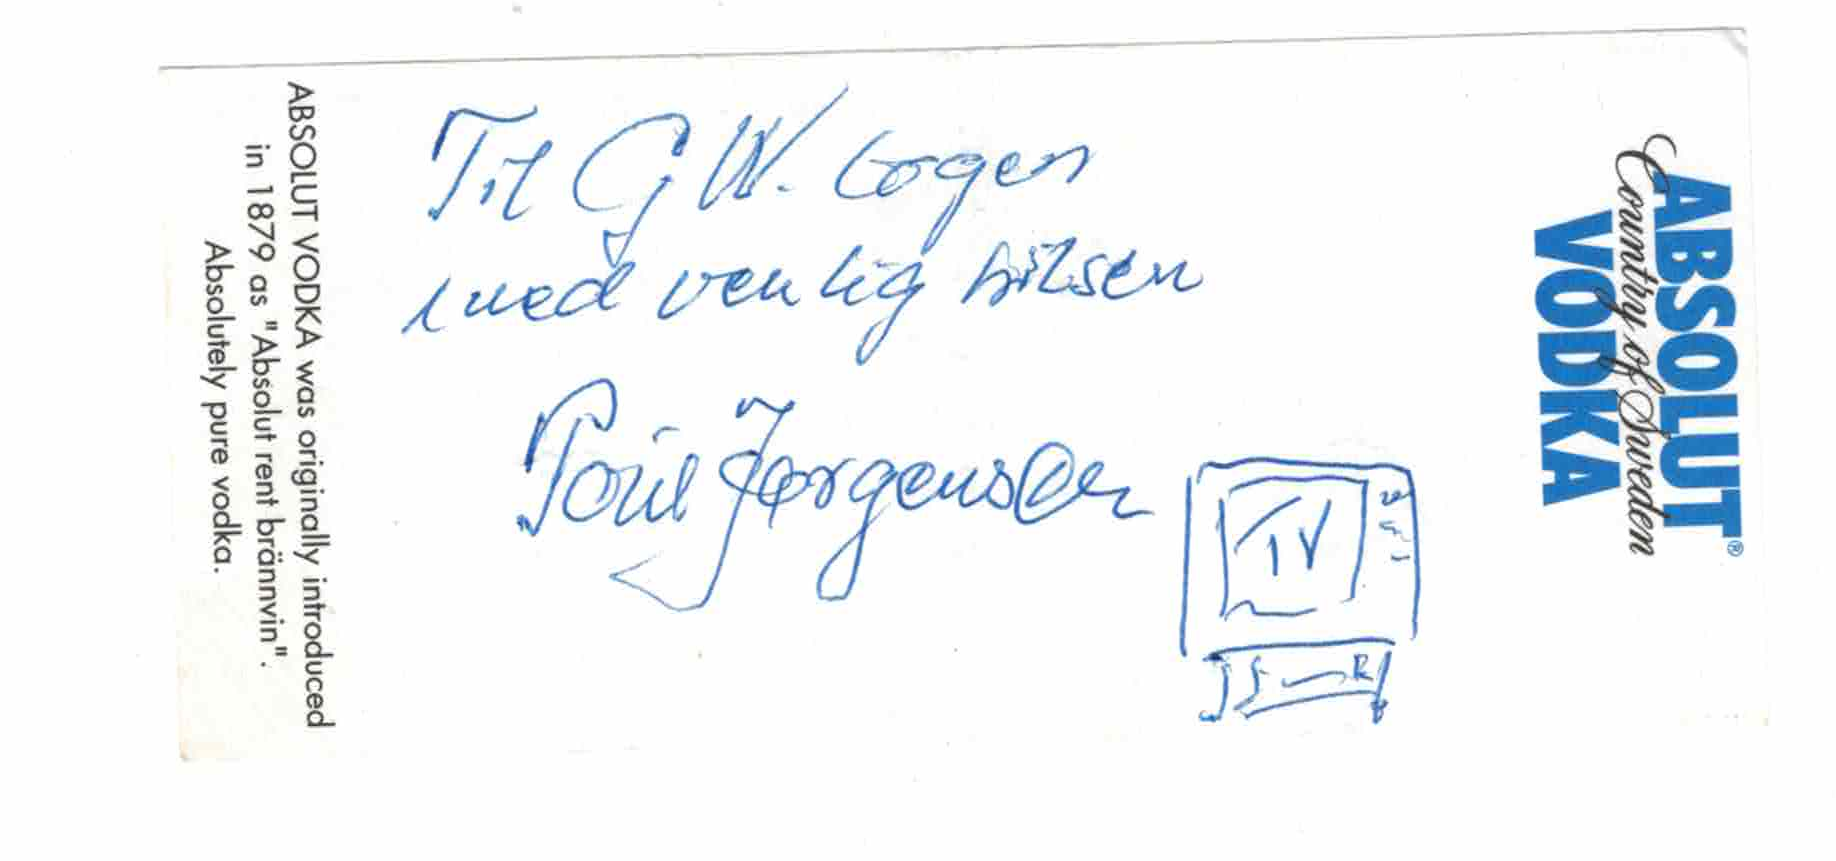 ABSOLUT VODKA was originally introduced
in 1879 as "Absolut rent brännvin".
Absolutely pure vodka.
Til G W. Logen
med venlig hilsen
Poul Jørgensen
TV
ABSOLUT®
Country of Sweden
VODKA